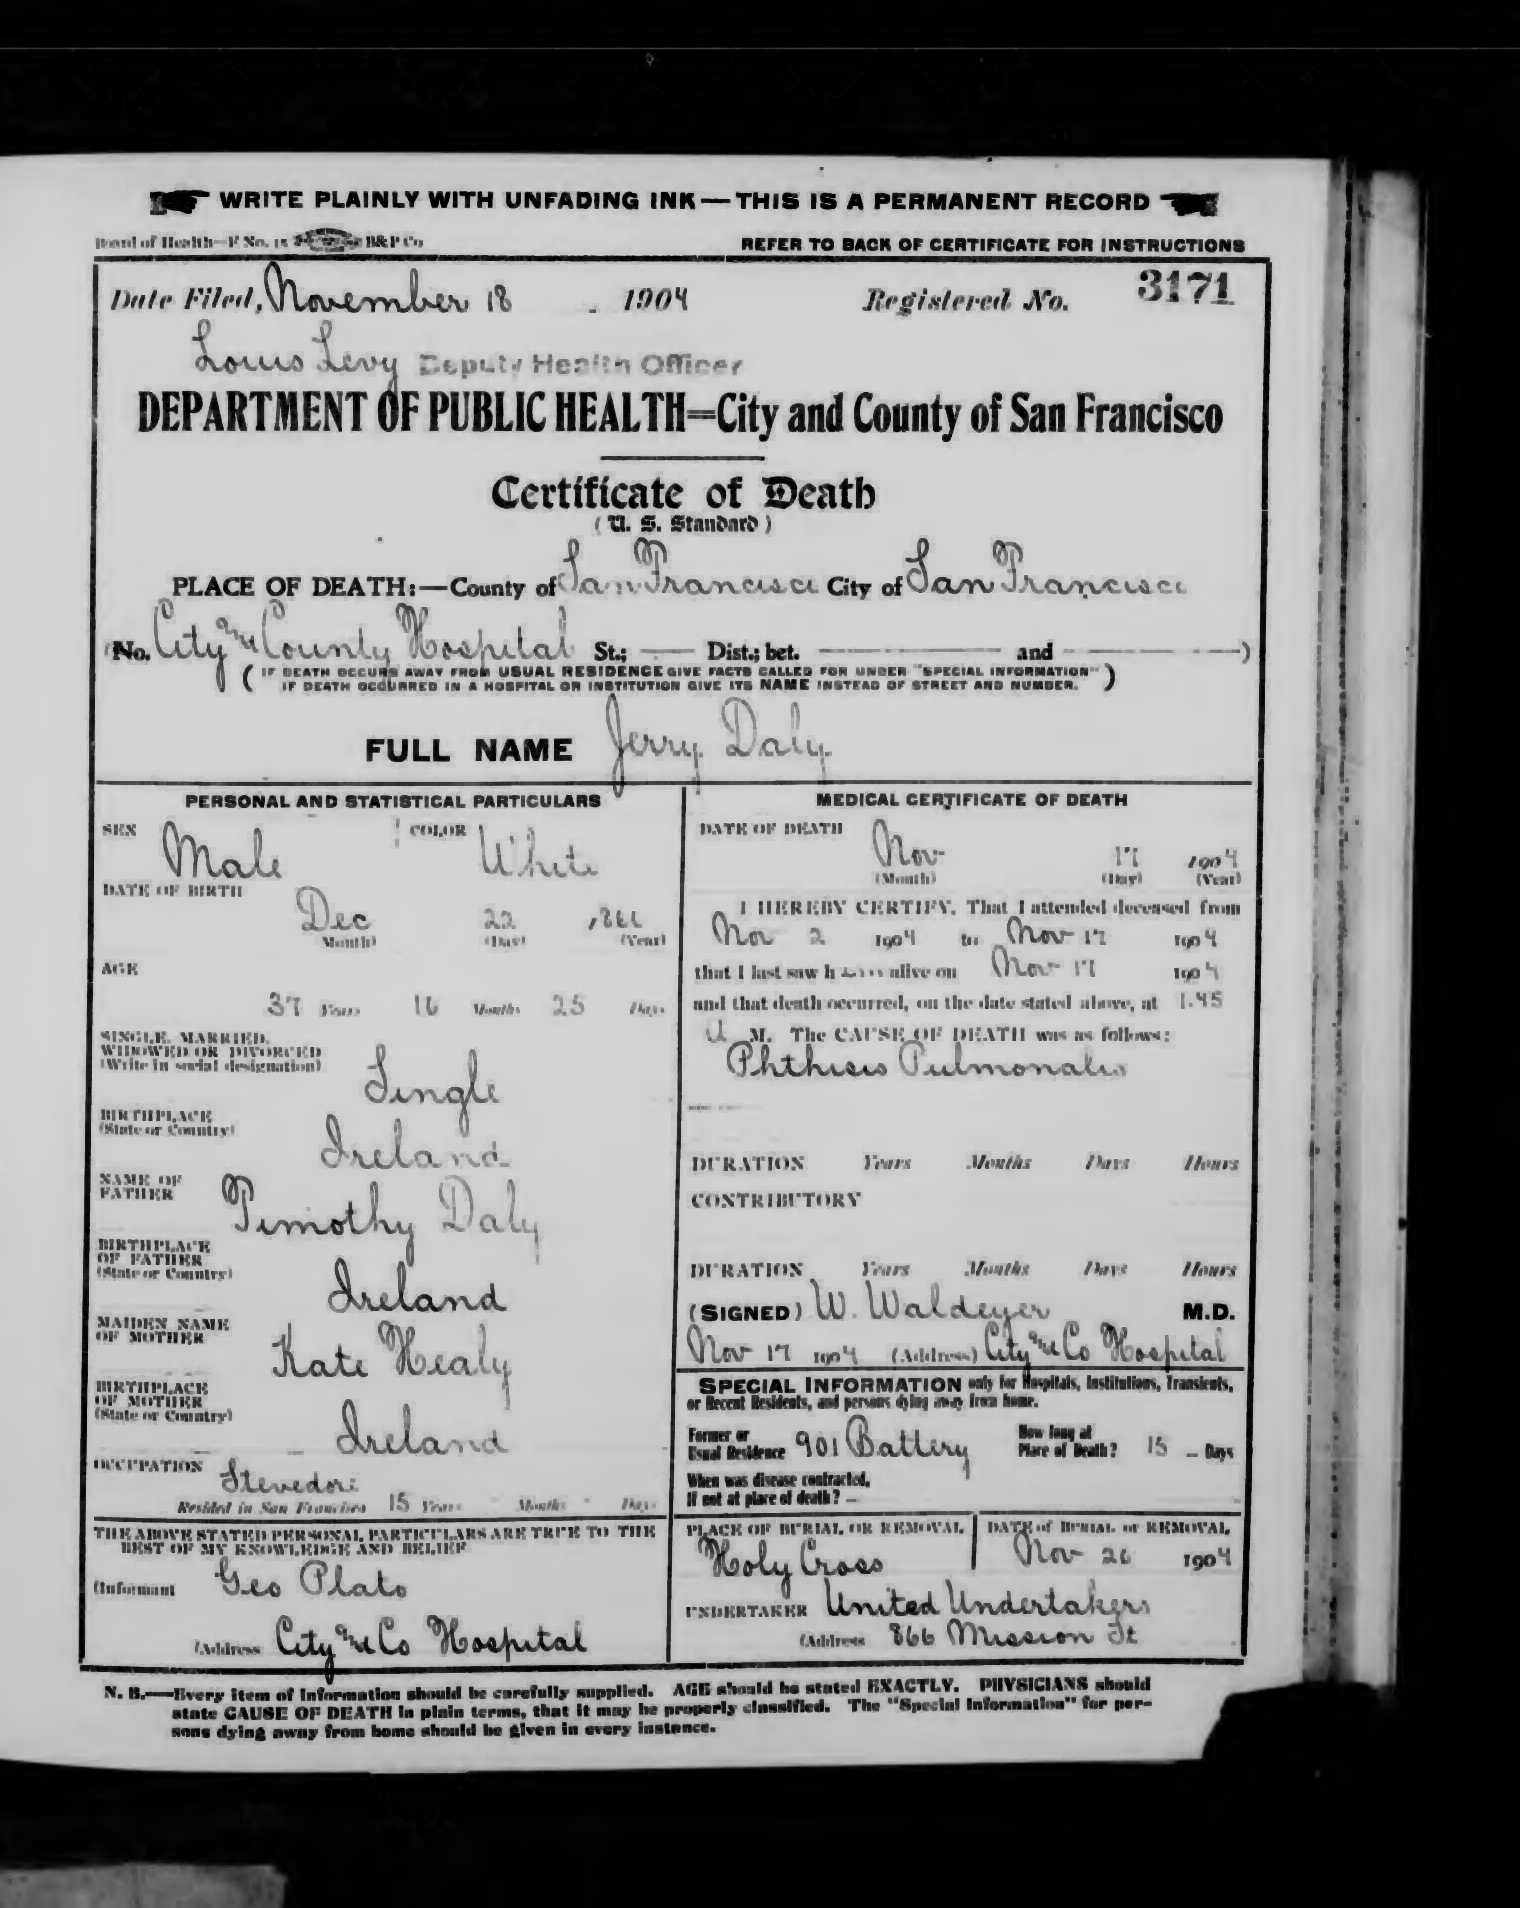 WRITE PLAINLY WITH UNFADING INK—THIS IS A PERMANENT RECORD
Board of Health—F. No. 15 B&P Co REFER TO BACK OF CERTIFICATE FOR INSTRUCTIONS
Date Filed, November 18 1904 Registered No. 3171
Louis Levy Deputy Health Officer
DEPARTMENT OF PUBLIC HEALTH=City and County of San Francisco
Certificate of Death
(U. S. Standard)
PLACE OF DEATH:—County of San Francisco City of San Francisco
(No. City and County Hospital St.; — Dist.; bet. — and —)
(IF DEATH OCCURS AWAY FROM USUAL RESIDENCE GIVE FACTS CALLED FOR UNDER "SPECIAL INFORMATION"
IF DEATH OCCURRED IN A HOSPITAL OR INSTITUTION GIVE ITS NAME INSTEAD OF STREET AND NUMBER.)
FULL NAME Jerry Daly
PERSONAL AND STATISTICAL PARTICULARS
SEX Male COLOR White
DATE OF BIRTH
Dec 22
(Month) (Day) (Year)
AGE
37 Years 16 Months 25 Days
SINGLE, MARRIED,
WIDOWED OR DIVORCED
(Write in social designation)
Single
BIRTHPLACE
(State or Country)
Ireland
NAME OF
FATHER
Timothy Daly
BIRTHPLACE
OF FATHER
(State or Country)
Ireland
MAIDEN NAME
OF MOTHER
Kate Healy
BIRTHPLACE
OF MOTHER
(State or Country)
Ireland
OCCUPATION Stevedore
Resided in San Francisco 15 Years - Months - Days
THE ABOVE STATED PERSONAL PARTICULARS ARE TRUE TO THE
BEST OF MY KNOWLEDGE AND BELIEF
(Informant Geo Plato
(Address City and Co Hospital
MEDICAL CERTIFICATE OF DEATH
DATE OF DEATH
Nov 17 1904
(Month) (Day) (Year)
I HEREBY CERTIFY, That I attended deceased from
Nov 2 1904 to Nov 17 1904
that I last saw him alive on Nov 17 1904
and that death occurred, on the date stated above, at 1.45
A M. The CAUSE OF DEATH was as follows:
Phthisis Pulmonalis
DURATION Years Months Days Hours
CONTRIBUTORY
DURATION Years Months Days Hours
(SIGNED) W. Waldeyer M.D.
Nov 17 1904 (Address) City and Co Hospital
SPECIAL INFORMATION only for Hospitals, Institutions, Transients,
or Recent Residents, and persons dying away from home.
Former or
Usual Residence 901 Battery
How long at
Place of Death? 15 Days
When was disease contracted,
If not at place of death? —
PLACE OF BURIAL OR REMOVAL
Holy Cross
DATE of BURIAL or REMOVAL
Nov 1904
UNDERTAKER United Undertakers
(Address 866 Mission St
N. B.—Every item of information should be carefully supplied. AGE should be stated EXACTLY. PHYSICIANS should
state CAUSE OF DEATH in plain terms, that it may be properly classified. The "Special Information" for per-
sons dying away from home should be given in every instance.